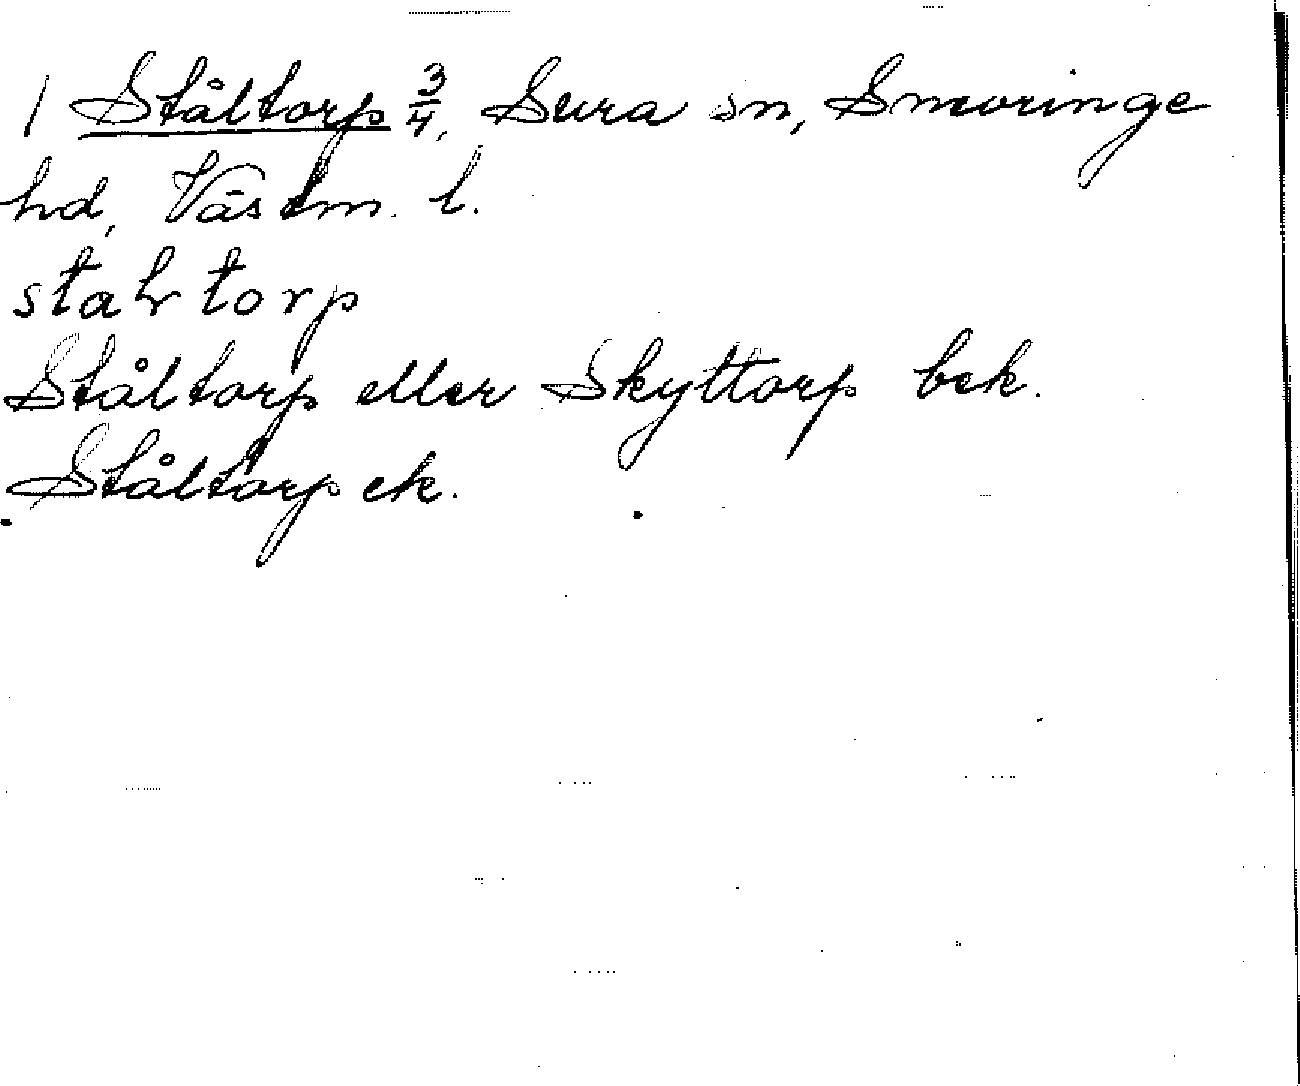 1 Ståltorp 3/4, Sura sn, Snevringe
hd, Västm. l.
staltorp
Ståltorp eller Skyttorp bek.
Ståltorp ek.